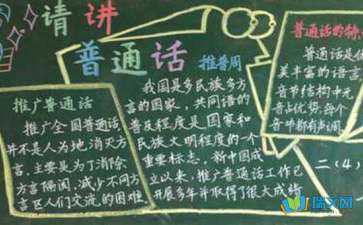 请讲
普通话
推普周
推广普通话
推广全国普通话,
并不是人为地消灭方
言,主要是为了消除
方言隔阂,减少不同方
言区人们交流的困难
我国是多民族多方
言的国家,共同语的
普及程度是国家和
民族文明程度的一个
重要标志,新中国成
立以来,推广普通话工作已
开展多年并取得了很大成绩
普通话的特
普通话是
美丰富的语言
音节结构中元
音占优势,每个
音节都有声调
二(4
瑞文网